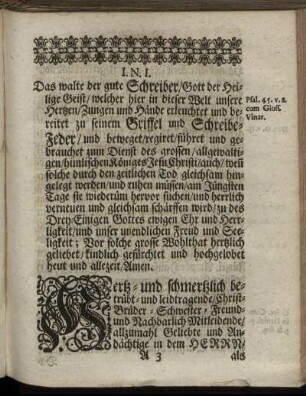 I. N. I.
Das walte der gute Schreiber/Gott der Hei-
lige Geist/welcher hier in dieser Welt unsere
Hertzen/Zungen und Hände erleuchtet und be-
reitet zu seinem Griffel und Schreibe-
Feder/und beweget/regiret/führet und ge-
brauchet zum Dienst des grossen/allgewalti-
gen/himlischen Königes Jesu Christi/auch/weñ
solche durch den zeitlichen Tod gleichsam hin-
gelegt werden/und ruhen müssen/am Jüngsten
Tage sie wiederüm hervor suchen/und herrlich
verneuen und gleichsam schärffen wird/zu des
Drey-Einigen Gottes ewigen Ehr und Herr-
ligkeit/und unser unendlichen Freud und See-
ligkeit; Vor solche grosse Wohlthat hertzlich
geliebet/kindlich gefürchtet und hochgelobet
heut und allezeit/Amen.
Psal. 45. v. 2.
com Gloss.
Vinar.
Hertz- und schmertzlich be-
trübt- und leidtragende/Christ-
Brüder- Schwester- Freund-
und Nachbarlich Mitleidende/
allzumahl Geliebte und An-
dächtige in dem HERRN
A 3 als